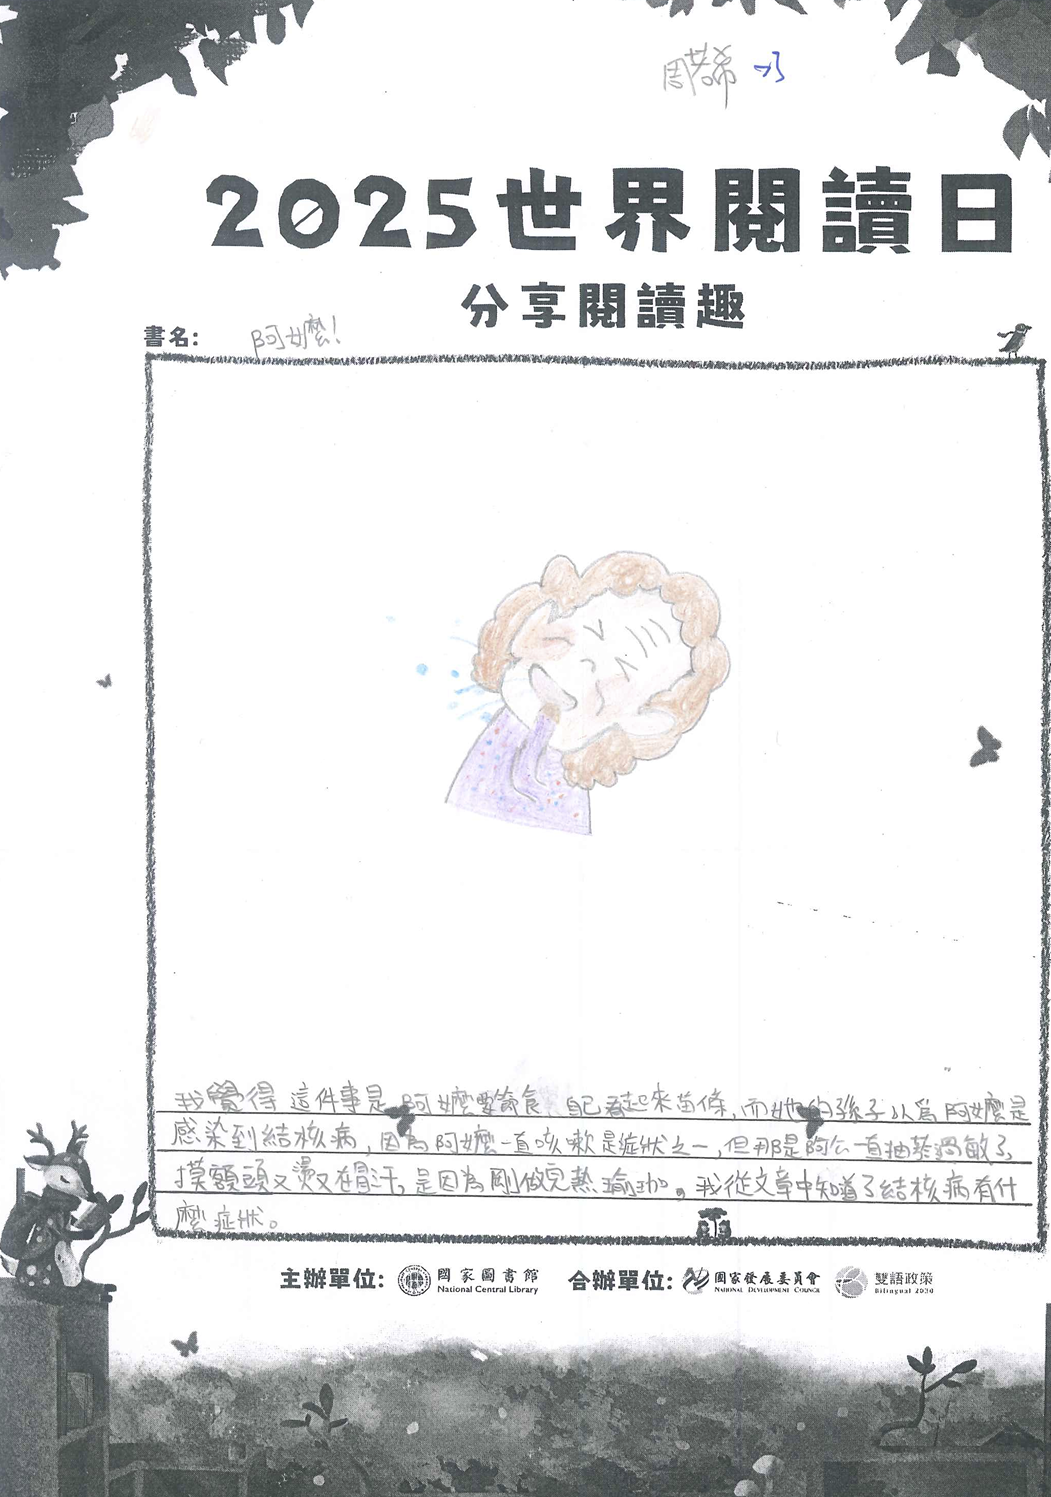 周芸希
2025世界閱讀日
分享閱讀趣
書名: 阿嬤!
我覺得 這件事是 阿嬤要節食,自己看起來苗條,而她的孫子以為 阿嬤是
感染到結核病,因為阿嬤一直咳嗽是症狀之一,但那是阿公一直抽菸過敏了,
摸額頭又燙又在冒汗,是因為剛做完熱瑜珈。我從文章中知道了結核病有什
麼症狀。
主辦單位: 國家圖書館 National Central Library 合辦單位: 國家發展委員會 NATIONAL DEVELOPMENT COUNCIL 雙語政策 Bilingual 2030